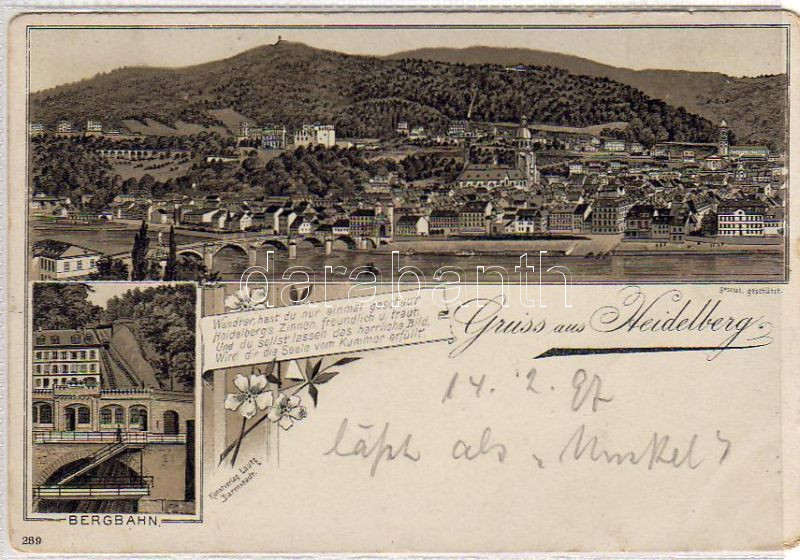 gesetzl. geschützt.
darabanth
Wandrer, hast du nur einmal geschaut
Heidelberg's Zinnen, freundlich u. traut,
Und du sollst lassen das herrliche Bild,
Wird dir die Seele vom Kummer erfüllt.
Gruss aus Heidelberg.
14. 2. 97
läßt als
Kunstverlag Lautz,
Darmstadt.
BERGBAHN.
289